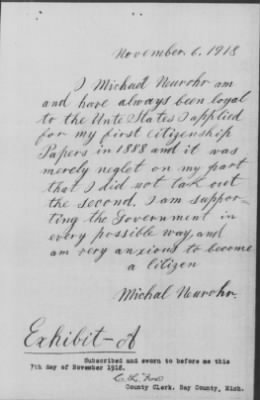 November 6, 1918
I Michael Neurohr am
and have always been loyal
to the Unte States I applied
for my first citizenship
Papers in 1888 and it was
merely neglet on my part
that I did not tak out
the second. I am suppor-
ting the Government in
every possible way, and
am very anxious to become
a Citizen
Michal Neurohr.
Exhibit-A
Subscribed and sworn to before me this
7th day of November 1918.
County Clerk, Bay County, Mich.